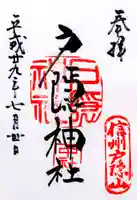 奉拝
信州戸隠山
戸隠神社
戸隠神社
平成廿九年七月日